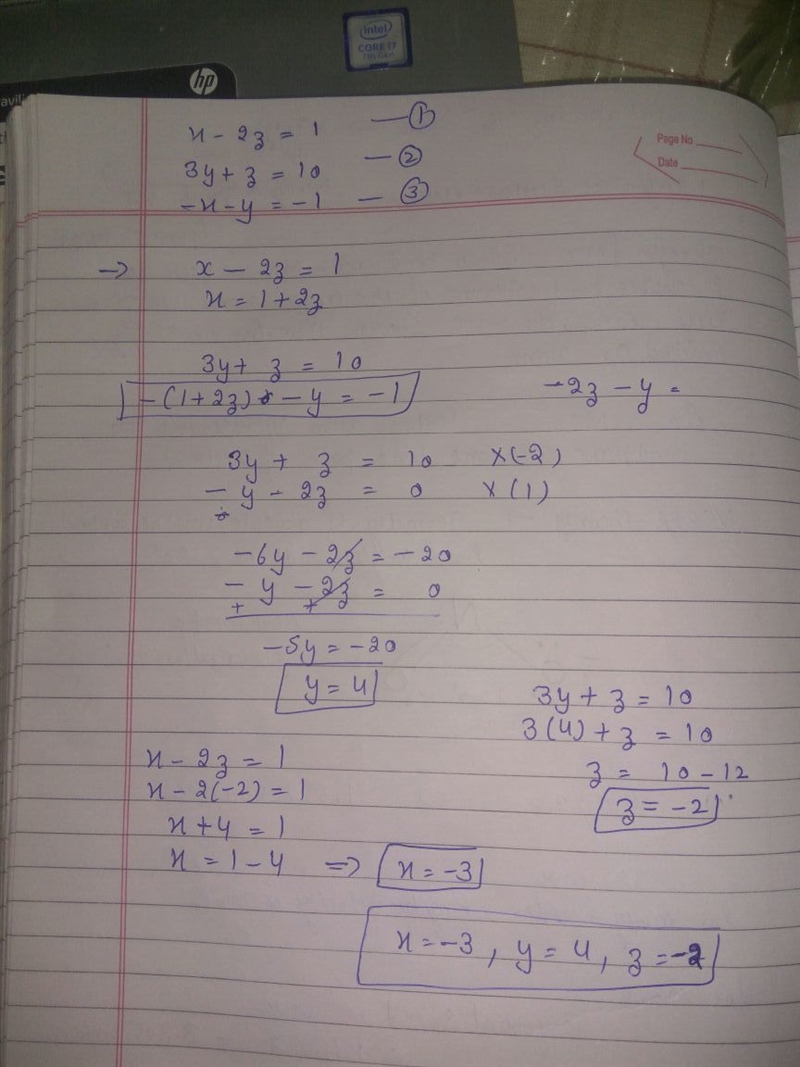 intel
CORE i7
hp
Page No
Date
x - 2z = 1 — ①
3y + z = 10 — ②
-x - y = -1 — ③
→ x - 2z = 1
x = 1 + 2z
3y + z = 10
-(1 + 2z) - y = -1
-2z - y =
3y + z = 10 ×(-2)
- y - 2z = 0 ×(1)
-6y - 2z = -20
- y - 2z = 0
+ +
-5y = -20
y = 4
3y + z = 10
3(4) + z = 10
z = 10 - 12
z = -2
x - 2z = 1
x - 2(-2) = 1
x + 4 = 1
x = 1 - 4 ⇒ x = -3
x = -3, y = 4, z = -2